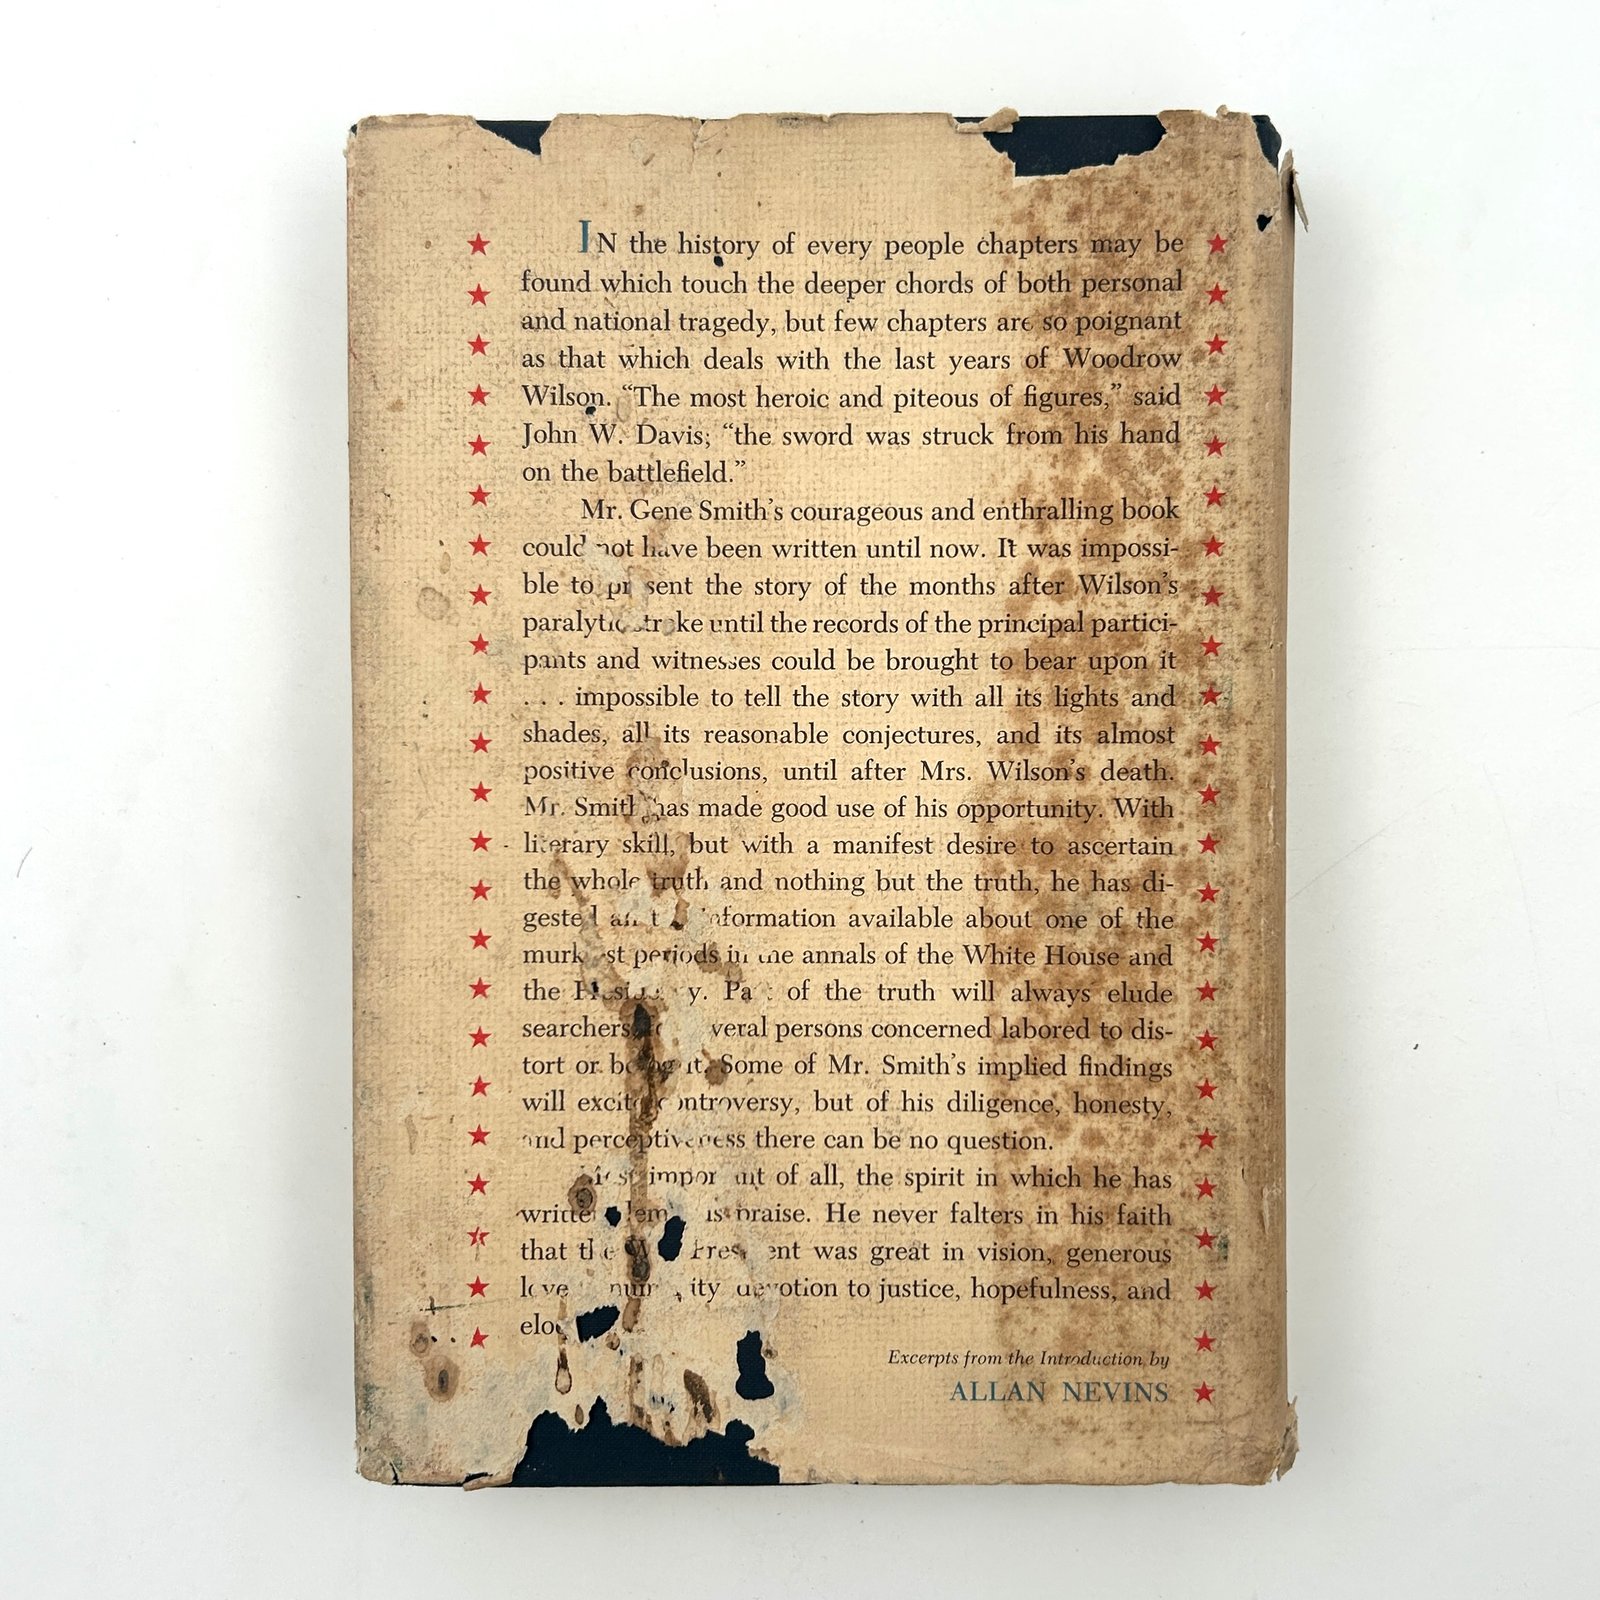 IN the history of every people chapters may be
found which touch the deeper chords of both personal
and national tragedy, but few chapters are so poignant
as that which deals with the last years of Woodrow
Wilson. “The most heroic and piteous of figures,” said
John W. Davis; “the sword was struck from his hand
on the battlefield.”
Mr. Gene Smith’s courageous and enthralling book
could not have been written until now. It was impossi-
ble to present the story of the months after Wilson’s
paralytic stroke until the records of the principal partici-
pants and witnesses could be brought to bear upon it
. . . impossible to tell the story with all its lights and
shades, all its reasonable conjectures, and its almost
positive conclusions, until after Mrs. Wilson’s death.
Mr. Smith has made good use of his opportunity. With
literary skill, but with a manifest desire to ascertain
the whole truth and nothing but the truth, he has di-
gested information available about one of the
murkiest periods in the annals of the White House and
the Presidency. Part of the truth will always elude
searchers, several persons concerned labored to dis-
tort or it. Some of Mr. Smith’s implied findings
will excite controversy, but of his diligence, honesty,
and perceptiveness there can be no question.
Most important of all, the spirit in which he has
written praise. He never falters in his faith
that the President was great in vision, generous
devotion to justice, hopefulness, and
Excerpts from the Introduction by
ALLAN NEVINS